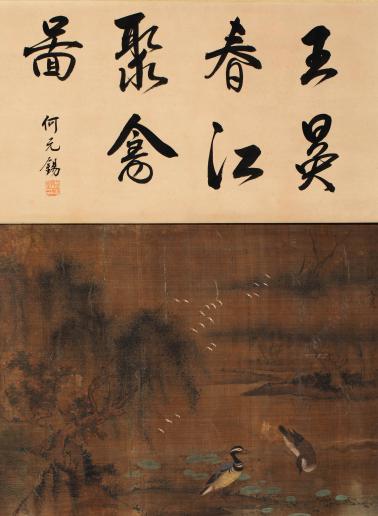 王昃
春江
聚禽
啚
何元錫